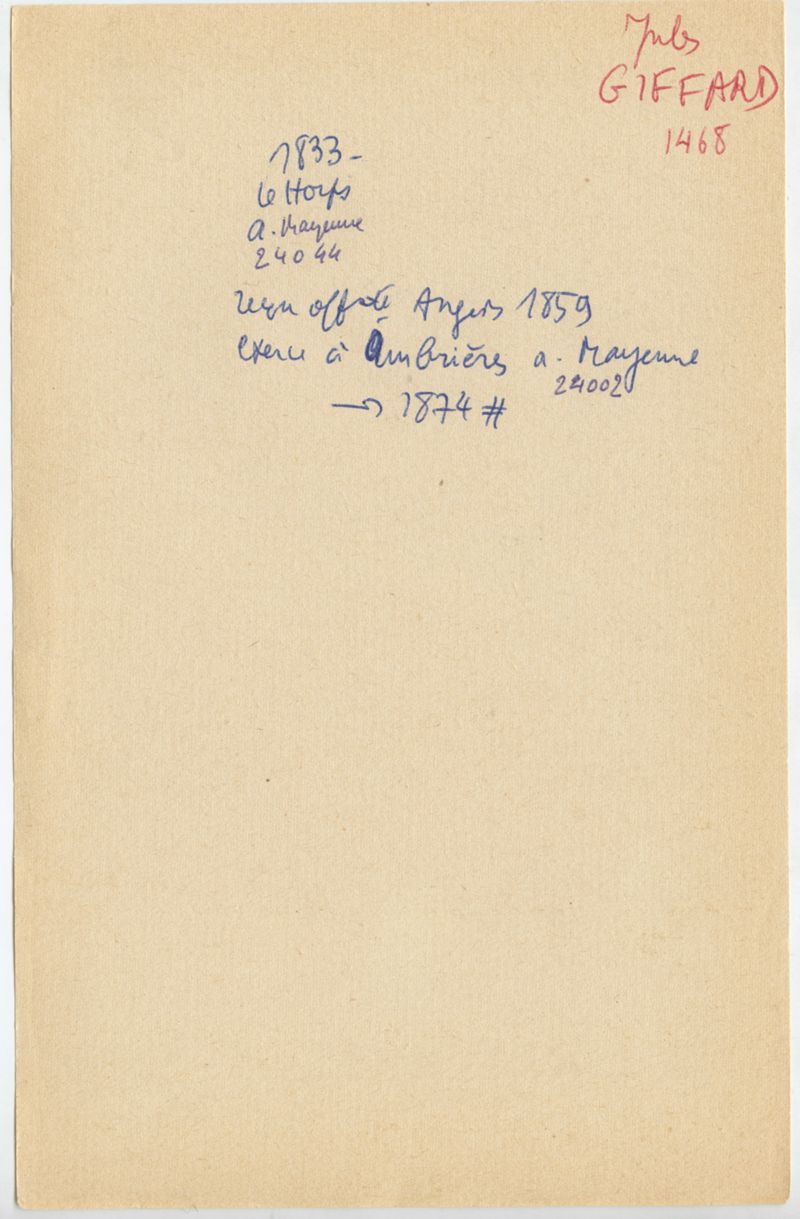 Jules
GIFFARD
1468
1833-
le Horps
a. Mayenne
24044
reçu off. Angers 1859
exerce à Ambrières a. Mayenne
24002
→ 1874 #